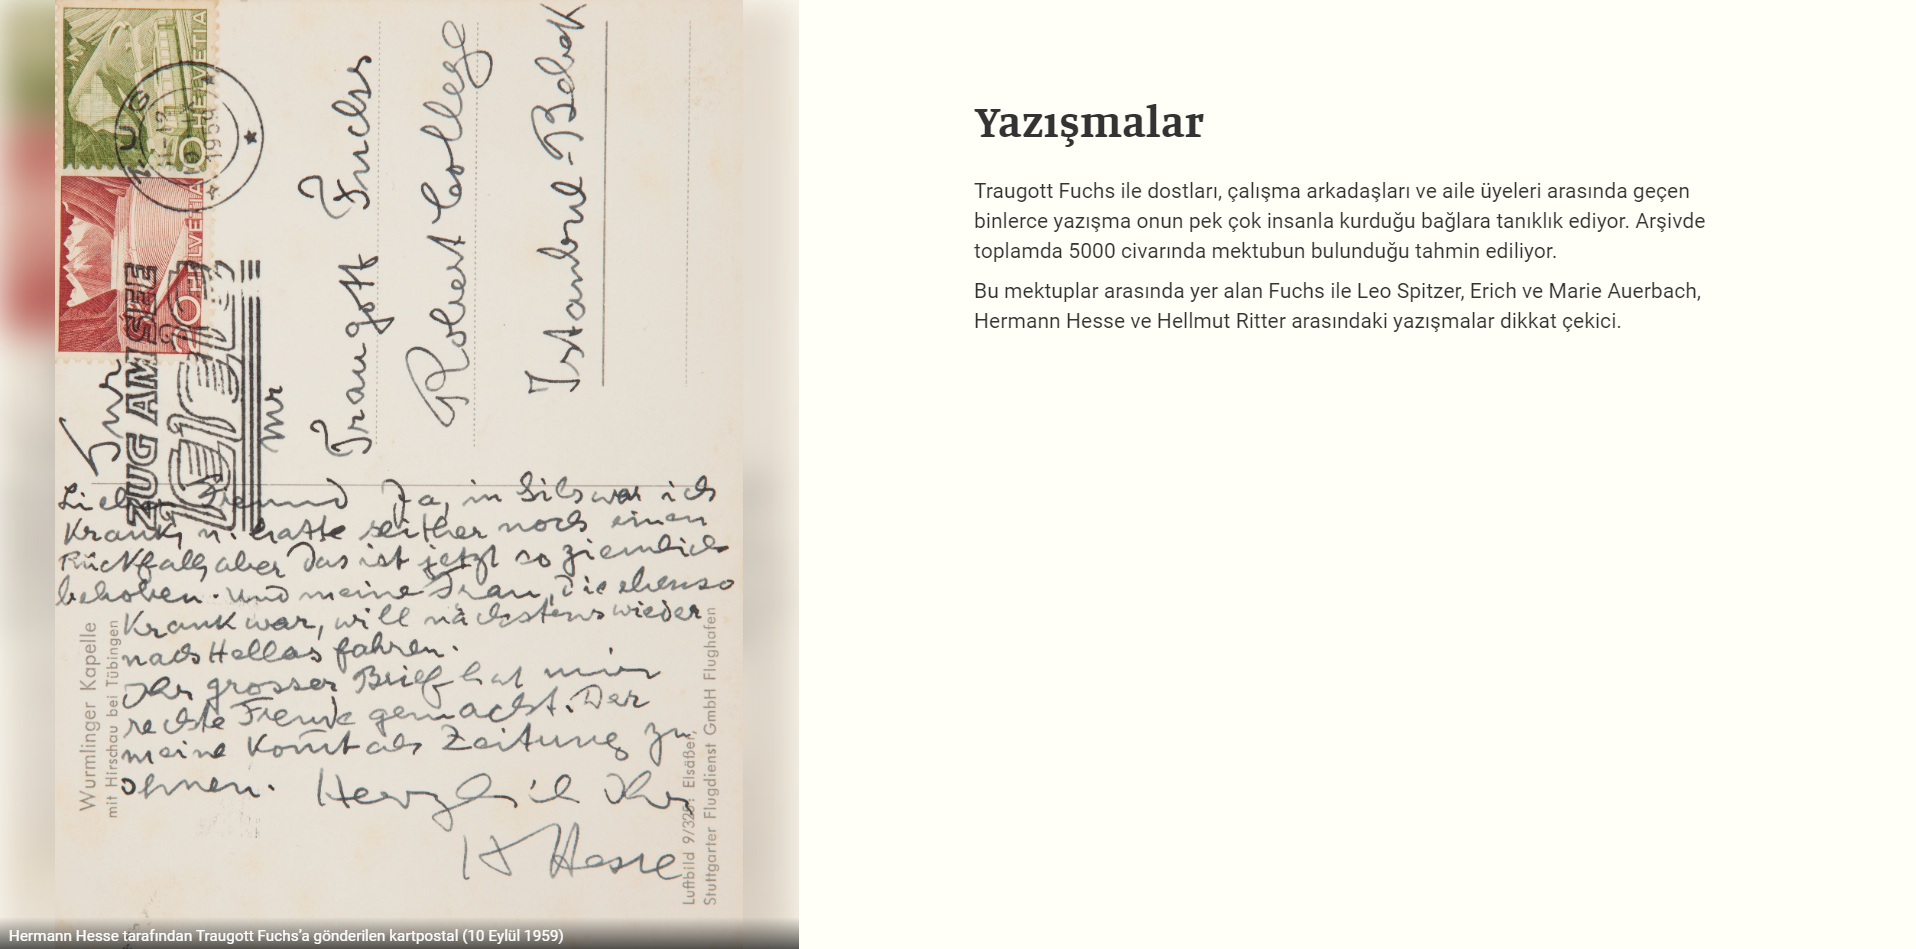 HELVETIA
10
HELVETIA
10
ZUG
1959
ZUG AM SEE
Mr
Traugott Fuchs
Robert College
Istanbul-Bebek
Lieber Freund Ja, in Sils war ich
krank, u. hatte seither noch einen
Rückfall, aber das ist jetzt so ziemlich
behoben. Und meine Frau, die ebenso
krank war, will nächstens wieder
nach Hellas fahren.
Ihr grosser Brief hat mir
rechte Freude gemacht. Der
meine kom̄t als Zeitung zu
Ihnen. Herzlich Ihr
H Hesse
Wurmlinger Kapelle
mit Hirschau bei Tübingen
Luftbild Elsäßer,
Stuttgarter Flugdienst GmbH Flughafen
Hermann Hesse tarafından Traugott Fuchs'a gönderilen kartpostal (10 Eylül 1959)
Yazışmalar
Traugott Fuchs ile dostları, çalışma arkadaşları ve aile üyeleri arasında geçen
binlerce yazışma onun pek çok insanla kurduğu bağlara tanıklık ediyor. Arşivde
toplamda 5000 civarında mektubun bulunduğu tahmin ediliyor.
Bu mektuplar arasında yer alan Fuchs ile Leo Spitzer, Erich ve Marie Auerbach,
Hermann Hesse ve Hellmut Ritter arasındaki yazışmalar dikkat çekici.